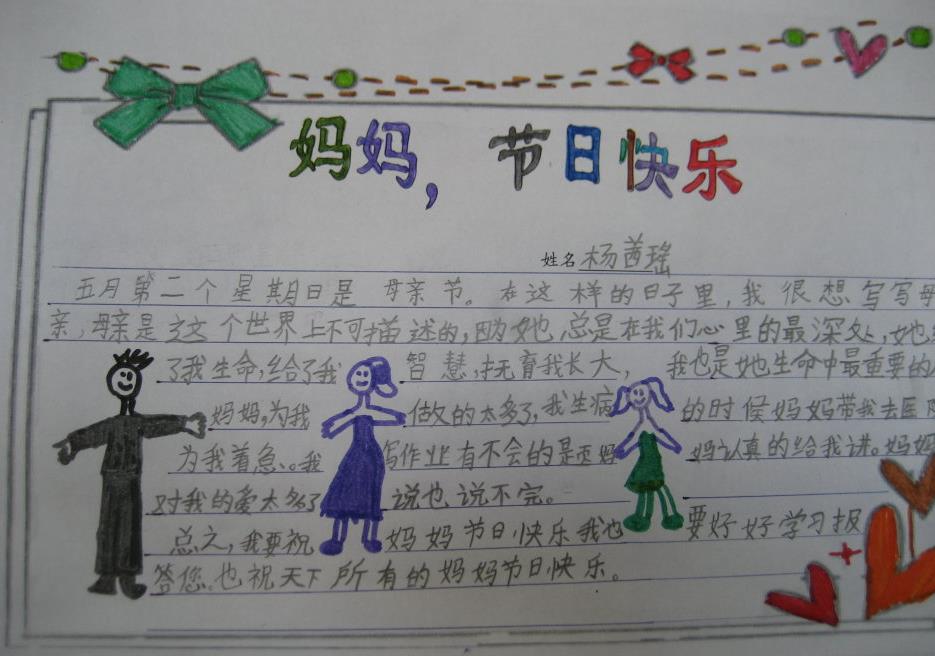 妈妈，节日快乐
姓名 杨茜瑶
五月第二个星期日是 母亲节。在这样的日子里，我很想写写母
亲，母亲是这个世界上不可描述的，因为她总是在我们心里的最深处，她
了我生命，给了我 智慧，抚育我长大， 我也是她生命中最重要的
妈妈，为我 做的太多了，我生病 的时候妈妈带我去医
为我着急。我 写作业有不会的是 妈 妈认真的给我讲。妈妈
对我的爱太多了 说也说不完。
总之，我要祝 妈妈节日快乐我也 要好好学习报
答您。也祝天下所有的妈妈节日快乐。